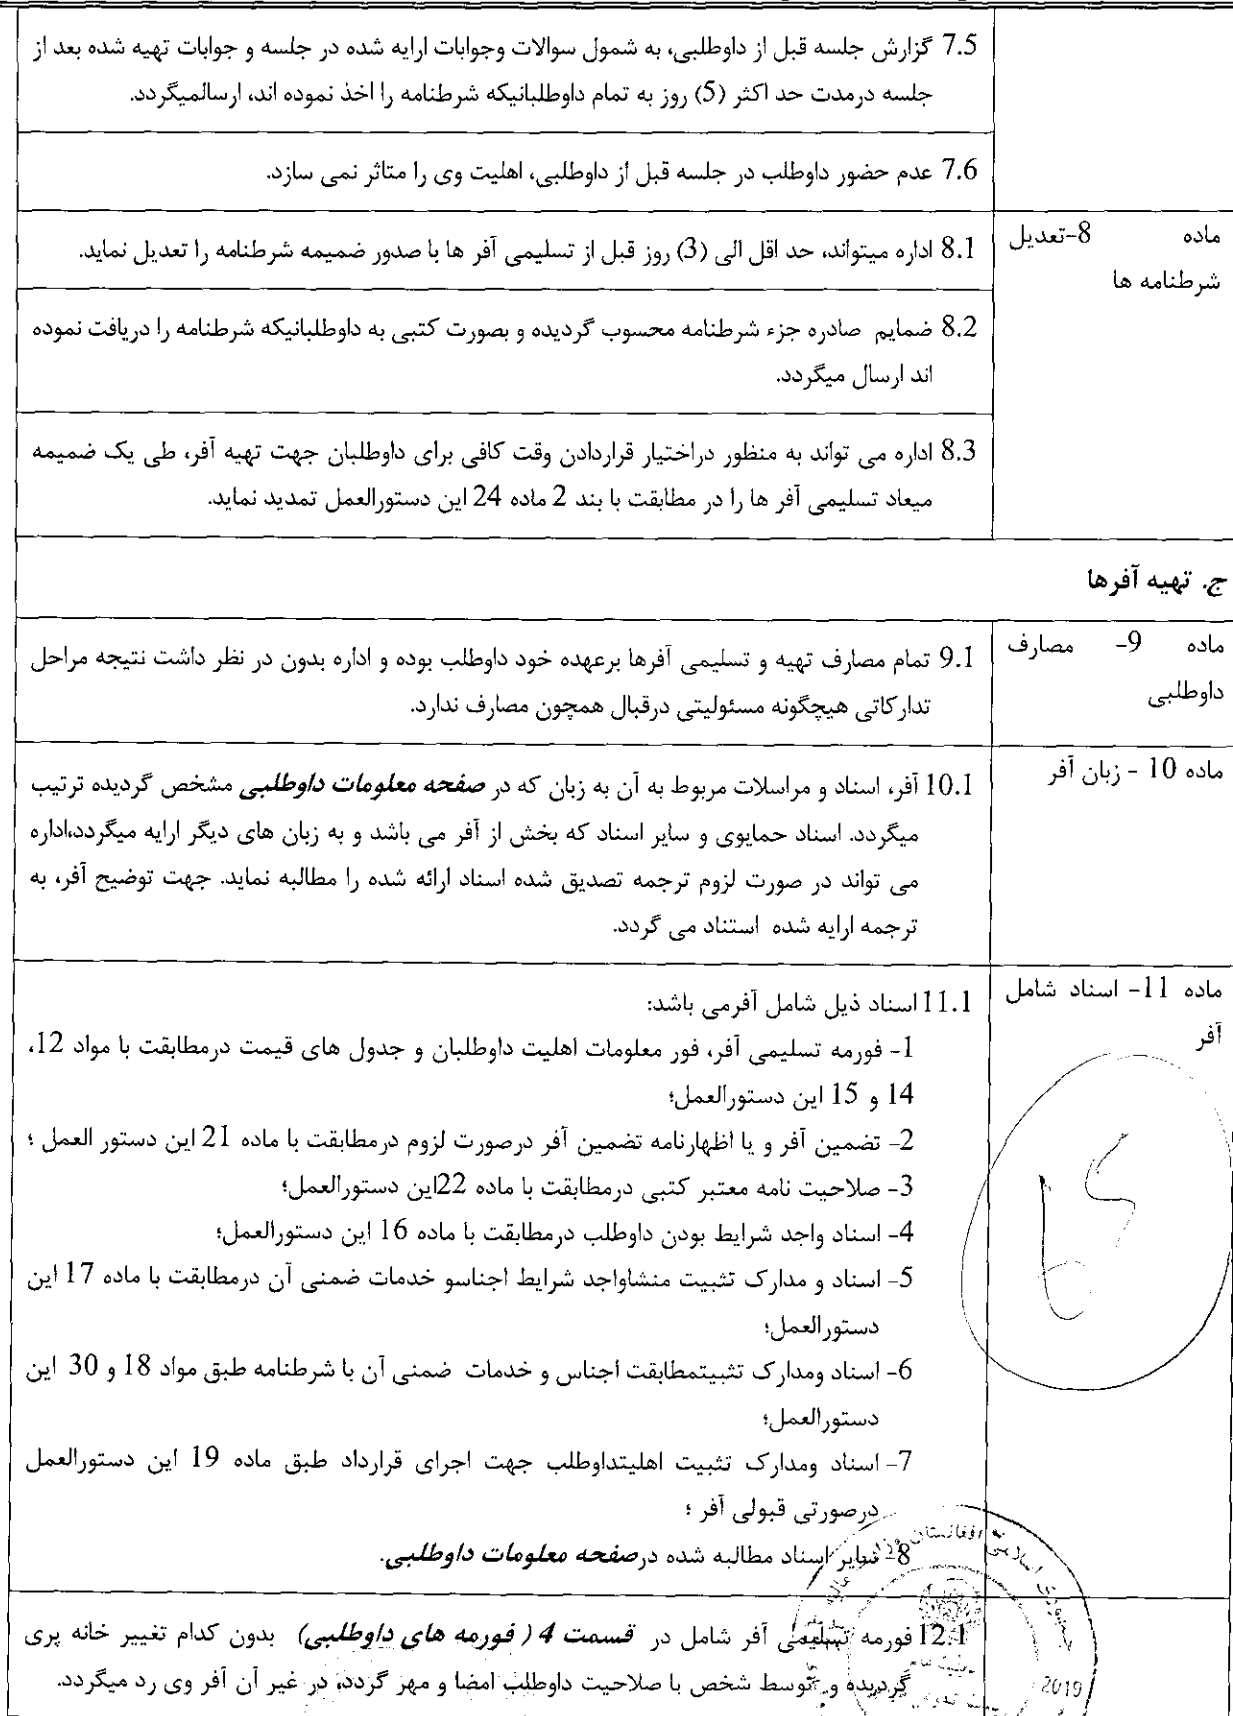 7.5 گزارش جلسه قبل از داوطلبی، به شمول سوالات وجوابات ارایه شده در جلسه و جوابات تهیه شده بعد از
جلسه درمدت حد اکثر (5) روز به تمام داوطلبانیکه شرطنامه را اخذ نموده اند، ارسالمیگردد.
7.6 عدم حضور داوطلب در جلسه قبل از داوطلبی، اهلیت وی را متاثر نمی سازد.
ماده 8-تعدیل
شرطنامه ها
8.1 اداره میتواند، حد اقل الی (3) روز قبل از تسلیمی آفر ها با صدور ضمیمه شرطنامه را تعدیل نماید.
8.2 ضمایم صادره جزء شرطنامه محسوب گردیده و بصورت کتبی به داوطلبانیکه شرطنامه را دریافت نموده
اند ارسال میگردد.
8.3 اداره می تواند به منظور دراختیار قراردادن وقت کافی برای داوطلبان جهت تهیه آفر، طی یک ضمیمه
میعاد تسلیمی آفر ها را در مطابقت با بند 2 ماده 24 این دستورالعمل تمدید نماید.
ج. تهیه آفرها
ماده 9- مصارف
داوطلبی
9.1 تمام مصارف تهیه و تسلیمی آفرها برعهده خود داوطلب بوده و اداره بدون در نظر داشت نتیجه مراحل
تدارکاتی هیچگونه مسئولیتی درقبال همچون مصارف ندارد.
ماده 10 - زبان آفر
10.1 آفر، اسناد و مراسلات مربوط به آن به زبان که در صفحه معلومات داوطلبی مشخص گردیده ترتیب
میگردد. اسناد حمایوی و سایر اسناد که بخش از آفر می باشد و به زبان های دیگر ارایه میگردد،اداره
می تواند در صورت لزوم ترجمه تصدیق شده اسناد ارائه شده را مطالبه نماید. جهت توضیح آفر، به
ترجمه ارایه شده استناد می گردد.
ماده 11- اسناد شامل
آفر
11.1 اسناد ذیل شامل آفرمی باشد:
1- فورمه تسلیمی آفر، فور معلومات اهلیت داوطلبان و جدول های قیمت درمطابقت با مواد 12،
14 و 15 این دستورالعمل؛
2- تضمین آفر و یا اظهارنامه تضمین آفر درصورت لزوم درمطابقت با ماده 21 این دستور العمل ؛
3- صلاحیت نامه معتبر کتبی درمطابقت با ماده 22این دستورالعمل؛
4- اسناد واجد شرایط بودن داوطلب درمطابقت با ماده 16 این دستورالعمل؛
5- اسناد و مدارک تثبیت منشاواجد شرایط اجناسو خدمات ضمنی آن درمطابقت با ماده 17 این
دستورالعمل؛
6- اسناد ومدارک تثبیتمطابقت اجناس و خدمات ضمنی آن با شرطنامه طبق مواد 18 و 30 این
دستورالعمل؛
7- اسناد ومدارک تثبیت اهلیتداوطلب جهت اجرای قرارداد طبق ماده 19 این دستورالعمل
درصورتی قبولی آفر ؛
8- سایر اسناد مطالبه شده درصفحه معلومات داوطلبی.
12.1 فورمه تسلیمی آفر شامل در قسمت 4 ( فورمه های داوطلبی) بدون کدام تغییر خانه پری
گردیده و توسط شخص با صلاحیت داوطلب امضا و مهر گردد، در غیر آن آفر وی رد میگردد.
2019